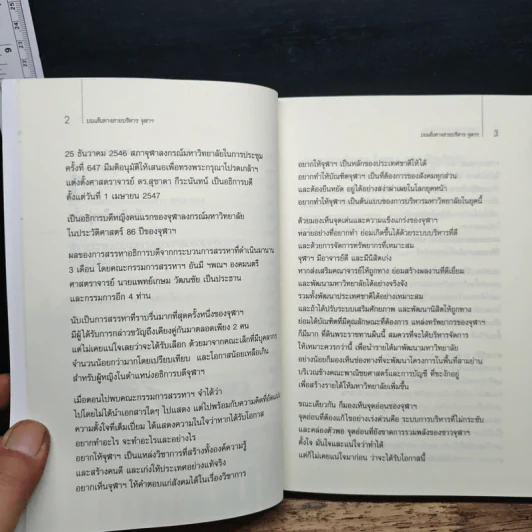 2 บนเส้นทางสายบริหาร จุฬาฯ
25 ธันวาคม 2546 สภาจุฬาลงกรณ์มหาวิทยาลัยในการประชุม
ครั้งที่ 647 มีมติอนุมัติให้เสนอเพื่อทรงพระกรุณาโปรดเกล้าฯ
แต่งตั้งศาสตราจารย์ ดร.สุชาดา กีระนันทน์ เป็นอธิการบดี
ตั้งแต่วันที่ 1 เมษายน 2547
เป็นอธิการบดีหญิงคนแรกของจุฬาลงกรณ์มหาวิทยาลัย
ในประวัติศาสตร์ 86 ปีของจุฬาฯ
ผลของการสรรหาอธิการบดีจากกระบวนการสรรหาที่ดำเนินมานาน
3 เดือน โดยคณะกรรมการสรรหาฯ อันมี ฯพณฯ องคมนตรี
ศาสตราจารย์ นายแพทย์เกษม วัฒนชัย เป็นประธาน
และกรรมการอีก 4 ท่าน
นับเป็นการสรรหาที่ราบรื่นมากที่สุดครั้งหนึ่งของจุฬาฯ
มีผู้ได้รับการกล่าวขวัญถึงเคียงคู่กันมาตลอดเพียง 2 คน
แต่ไม่เคยแน่ใจเลยว่าจะได้รับเลือก ด้วยมาจากคณะเล็กที่มีบุคลากร
จำนวนน้อยกว่ามากโดยเปรียบเทียบ และโอกาสน้อยเหลือเกิน
สำหรับผู้หญิงในตำแหน่งอธิการบดีจุฬาฯ
เมื่อตอนไปพบคณะกรรมการสรรหาฯ จำได้ว่า
ไปโดยไม่ได้นำเอกสารใดๆ ไปแสดง แต่ไปพร้อมกับความคิดที่
ความตั้งใจที่เต็มเปี่ยม ได้แสดงความมั่นใจว่าหากได้รับโอกาส
อยากทำอะไร จะทำอะไรและอย่างไร
อยากให้จุฬาฯ เป็นแหล่งวิชาการที่สร้างทั้งองค์ความรู้
และสร้างคนดี และเก่งให้ประเทศอย่างแท้จริง
อยากเห็นจุฬาฯ ให้คำตอบแก่สังคมได้ในเรื่องวิชาการ
บนเส้นทางสายบริหาร จุฬาฯ 3
อยากให้จุฬาฯ เป็นหลักของประเทศชาติให้ได้
อยากทำให้บัณฑิตจุฬาฯ เป็นที่ต้องการของสังคมทุกส่วน
และต้องยืนหยัด อยู่ได้อย่างสง่าผ่าเผยในโลกยุคหน้า
อยากทำให้จุฬาฯ เป็นต้นแบบของการบริหารมหาวิทยาลัยในยุคนี้
ด้วยมองเห็นจุดเด่นและความแข็งแกร่งของจุฬาฯ
หลายอย่างที่อยากทำ ย่อมเกิดขึ้นได้ด้วยระบบบริหารที่ดี
และด้วยการจัดการทรัพยากรที่เหมาะสม
จุฬาฯ มีอาจารย์ดี และมีนิสิตเก่ง
หากส่งเสริมคณาจารย์ให้ถูกทาง ย่อมสร้างผลงานที่ดีเยี่ยม
และพัฒนามหาวิทยาลัยได้อย่างจริงจัง
รวมทั้งพัฒนาประเทศชาติได้อย่างเหมาะสม
และถ้าได้ปรับระบบเสริมศักยภาพ และพัฒนานิสิตให้ถูกทาง
ย่อมได้บัณฑิตที่มีคุณลักษณะที่ต้องการ แหล่งทรัพยากรของจุฬาฯ
ก็มีมาก ที่ดินพระราชทานผืนนี้ สมควรที่จะบริหารจัดการ
ให้เหมาะควรกว่านี้ เพื่อนำรายได้มาพัฒนามหาวิทยาลัย
อย่างน้อยก็มองเห็นช่องทางที่จะพัฒนาโครงการในพื้นที่สามย่าน
บริเวณข้างคณะพาณิชยศาสตร์และการบัญชี ที่ชะงักอยู่
เพื่อสร้างรายได้ให้มหาวิทยาลัยเพิ่มขึ้น
ขณะเดียวกัน ก็มองเห็นจุดอ่อนของจุฬาฯ
จุดอ่อนที่ต้องแก้ไขอย่างเร่งด่วนคือ ระบบการบริหารที่ไม่กระชับ
และคล่องตัวพอ จุดอ่อนที่ยังขาดการรวมพลังของชาวจุฬาฯ
ตั้งใจ มั่นใจและแน่ใจว่าทำได้
แต่ก็ไม่เคยแน่ใจมาก่อน ว่าจะได้รับโอกาสนี้